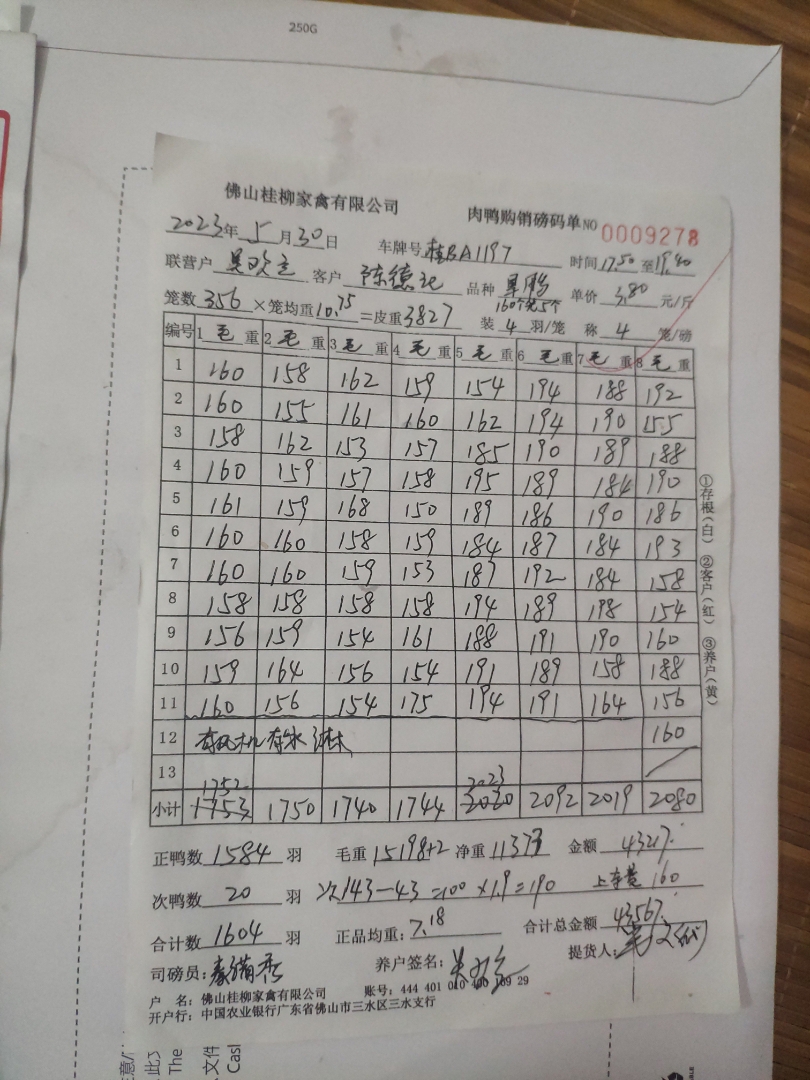 250G
佛山桂柳家禽有限公司 肉鸭购销磅码单 NO 0009278
2023年5月30日 车牌号 桂BA1197 时间 17.50 至 19.40
联营户 客户 陈德 品种 单价 3.80 元/斤
笼数 356 ×笼均重 10.75 =皮重 3827 装 4 羽/笼 称 4 笼/磅
编号 1 毛 重 2 毛 重 3 毛 重 4 毛 重 5 毛 重 6 毛 重 7 毛 重 8 毛 重
1 160 158 162 159 154 194 188 192
2 160 155 161 160 162 194 190 155
3 158 162 153 157 185 190 189 188
4 160 159 157 158 195 189 184 190
5 161 159 168 150 189 186 190 186
6 160 160 158 159 184 187 184 193
7 160 160 159 153 187 192 184 158
8 158 158 158 158 194 189 198 154
9 156 159 154 161 188 191 190 160
10 159 164 156 154 191 189 158 188
11 160 156 154 175 194 191 164 156
12 有风机 有水 160
13
1752 2023
小计 1753 1750 1740 1744 2020 2092 2019 2080
正鸭数 1584 羽 毛重 15198+2 净重 11373 金额 43217.
次鸭数 20 羽 次143-43=100×1.9=190 上车费 160
合计数 1604 羽 正品均重: 7.18 合计总金额 43567.
司磅员: 养户签名: 提货人:
户 名: 佛山桂柳家禽有限公司 账号: 444 401 010 29
开户行: 中国农业银行广东省佛山市三水区三水支行
①存根(白) ②客户(红) ③养户(黄)
The
文件
Casl